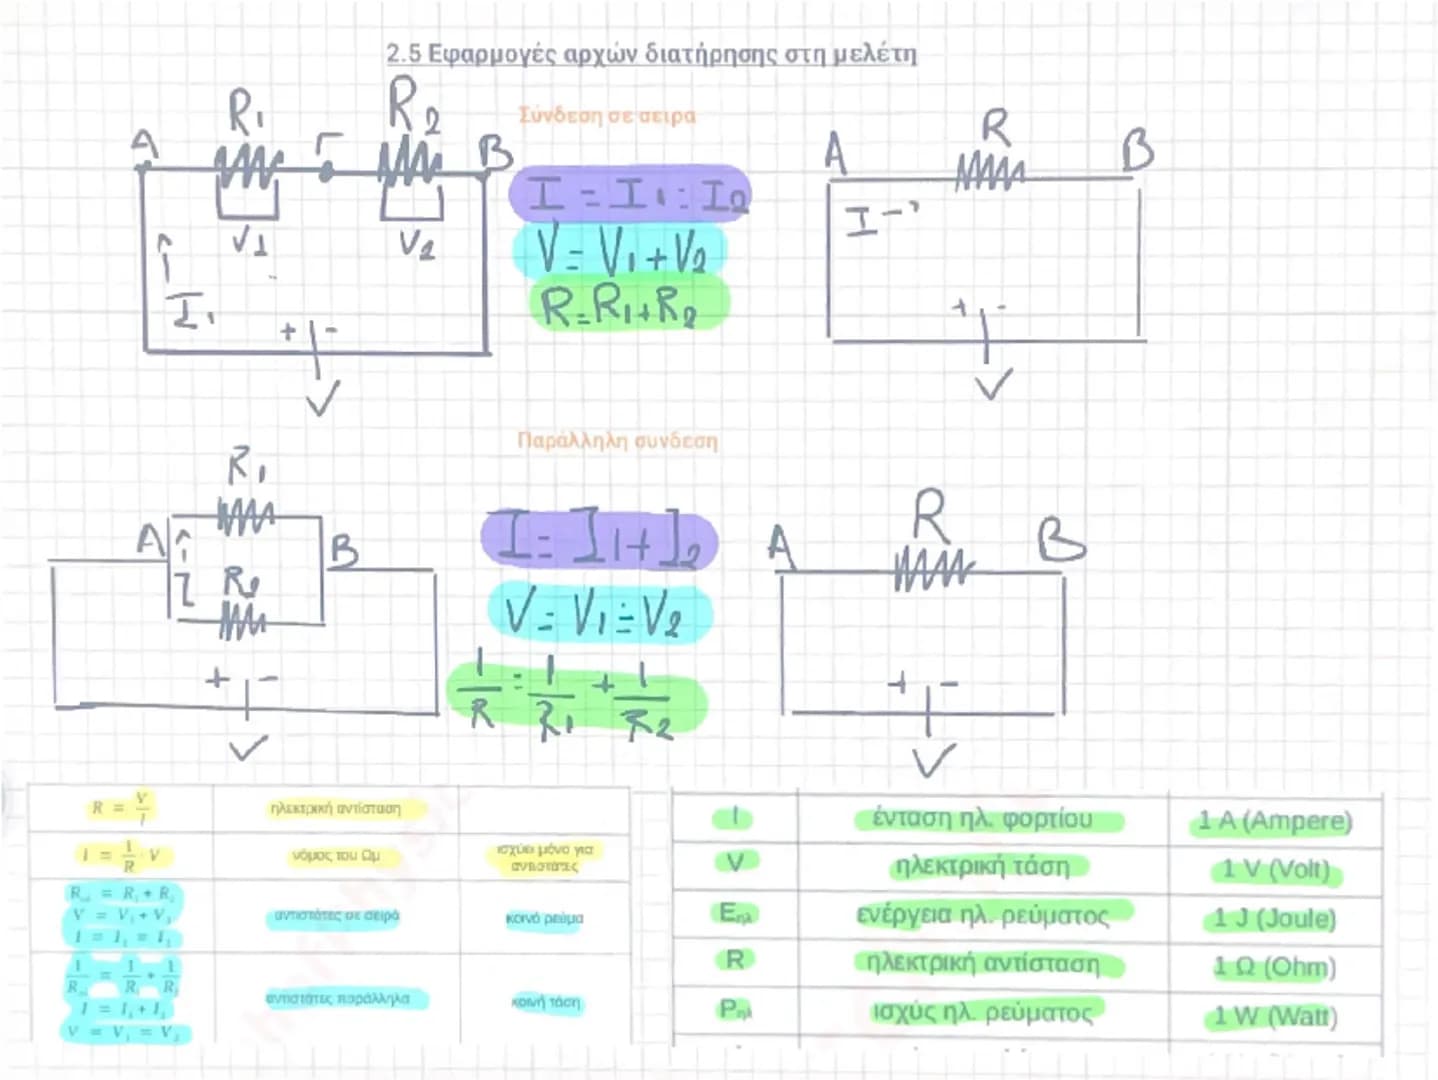 2.5 Εφαρμογές αρχών διατήρησης στη μελέτη
R₁
R₂
Σύνδεση σε σειρα
A
Γ
B
V1
V2
I₁
+ -
V
I = I₁ = I₂
V = V₁ + V₂
R = R₁ + R₂
R
A
B
I →
+ -
V
Παράλληλη συνδεση
R₁
A
B
I
R₂
+ -
V
I = I₁ + I₂
V = V₁ = V₂
1/R = 1/R₁ + 1/R₂
R
A
B
+ -
V
R = V/I ηλεκτρική αντίσταση
I = 1/R · V νόμος του Ωμ ισχύει μόνο για αντιστάτες
R = R₁ + R₂
V = V₁ + V₂
I = I₁ = I₂
αντιστάτες σε σειρά κοινό ρεύμα
1/R = 1/R₁ + 1/R₂
I = I₁ + I₂
V = V₁ = V₂
αντιστάτες παράλληλα κοινή τάση
I ένταση ηλ. φορτίου 1 A (Ampere)
V ηλεκτρική τάση 1 V (Volt)
Eηλ ενέργεια ηλ. ρεύματος 1 J (Joule)
R ηλεκτρική αντίσταση 1 Ω (Ohm)
Pηλ ισχύς ηλ. ρεύματος 1 W (Watt)